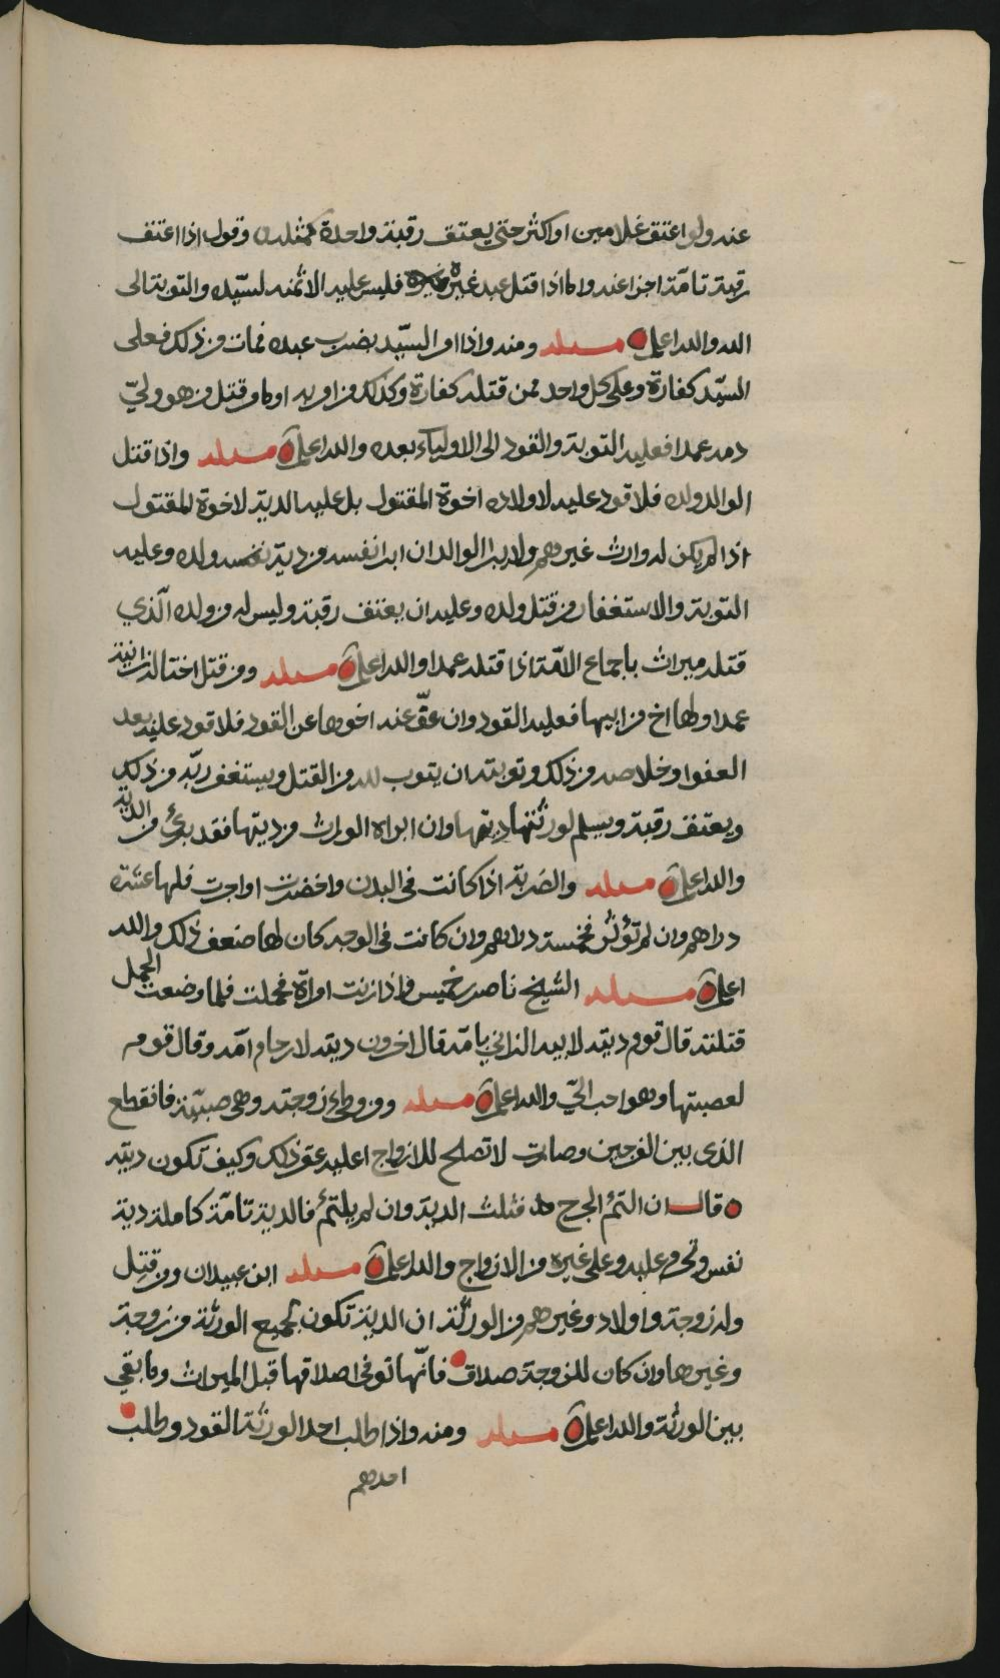 عنه ولو اعتق غلامين او اكثر حتى يعتق رقبة واحدة كمثله وقول اذا اعتق
رقبة تامة اجزا عنه واما اذا قتل عبد غيره فليس عليه الا ثمنه لسيّده والتوبة الى
الله والله اعلم مسئلة ومنه واذا امر السيّد بضرب عبده فمات من ذلك فعلى
السيّد كفارة وعلى كل واحد ممن قتله كفارة وكذلك من امر به او امر قتل من هو وليّ
دمه عمدا فعليه التوبة والقود الى الاولياء بعده والله اعلم مسئلة واذا قتل
الوالد ولده فلا قود عليه لاولاده اخوة المقتول بل عليه الدية لاخوة المقتول
اذا لم يكن له وارث غيرهم ولا يبرا الوالد ان ابرا نفسه من دية نفس ولده وعليه
التوبة والاستغفار من قتل ولده وعليه ان يعتق رقبة وليس له من ولده الّذي
قتله ميراث باجماع الامّة اذا قتله عمدا والله اعلم مسئلة ومن قتل اختا لزانية
عمدا ولها اخ من ابيها فعليه القود وان عفّ عنه اخوها عن القود فلا قود عليه بعد
العفو وخلاصه من ذلك وتوبته ان يتوب لله من القتل ويستغفر ربّه من ذلك
ويعتق رقبة ويسلم لورثتها ديتها وان ابراه الوراث من ديتها فقد برئ من الدية
والله اعلم مسئلة والضربة اذا كانت في البدن واخضرت او احمرت فلها عشرة
دراهم وان لم تؤثر فخمسة دراهم وان كانت في الوجه كان لها ضعف ذلك والله
اعلم مسئلة الشيخ ناصر بن خميس واذا زنت امراة فحملت فلما وضعت الحمل
قتلته قال قوم ديته لابيه الزاني بامّه قال اخرون ديته لارحام امّه وقال قوم
لعصبتها وهو احب اليّ والله اعلم مسئلة ومن وطئ زوجته وهي صبيّة فانقطع
الذي بين الفرجين وصارت لا تصلح للازواج اعليه عقر ذلك وكيف تكون ديته
قال ان التئم الجرح فثلث الدية وان لم يلتئم فالدية تامّة كاملة دية
نفس وتحرم عليه وعلى غيره من الازواج والله اعلم مسئلة ابن عبيدان ومن قتل
وله زوجة واولاد وغيرهم من الورثة ان الدية تكون لجميع الورثة من زوجة
وغيرها وان كان للزوجة صداق فانّها توفى اصداقها قبل الميراث وما بقي
بين الورثة والله اعلم مسئلة ومنه واذا طلب احد الورثة القود وطلب
احدهم